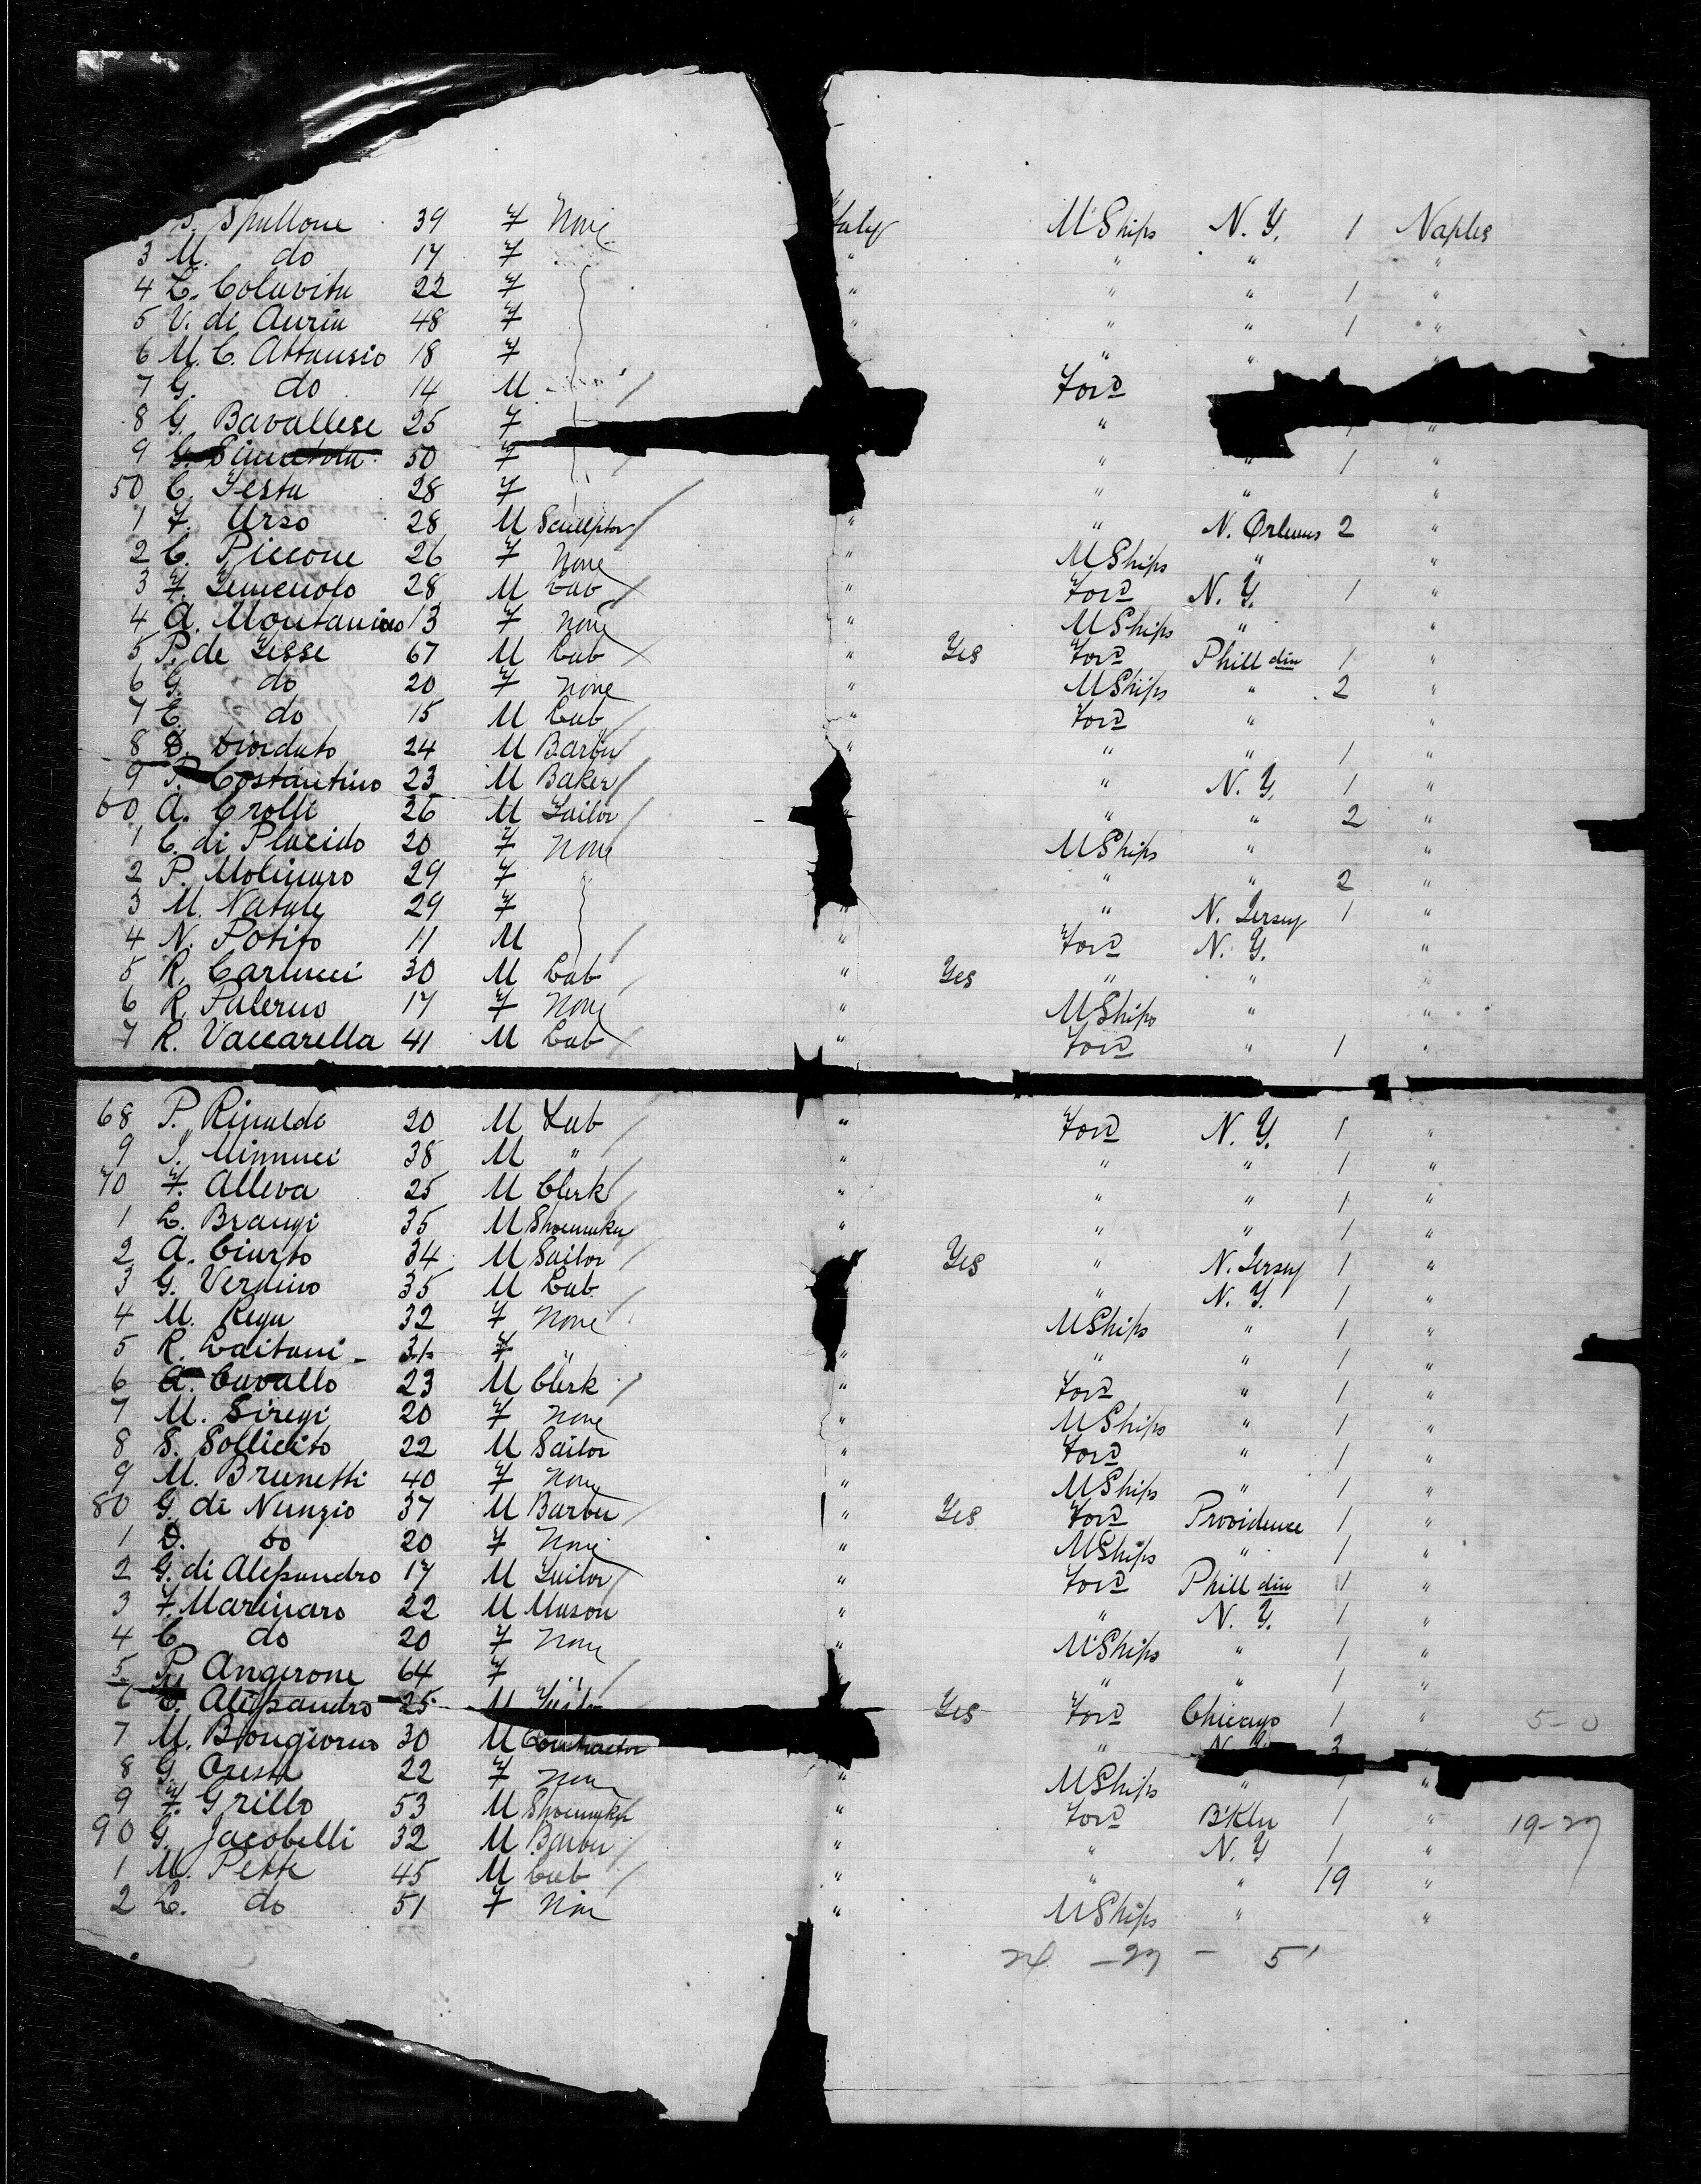 S. Spullone 39 F None Italy MShips N. Y. 1 Naples
3 M. do 17 F " " " "
4 L. Colavita 22 F " " " 1 "
5 V. di Auria 48 F " " " 1 "
6 M. C. Attausio 18 F " "
7 G. do 14 M Ford
8 G. Bavallese 25 F " "
9 50 F " " 1 "
50 C. Testa 28 F " " "
1 F. Urso 28 M Sculptor " " N. Orleans 2 "
2 C. Piccone 26 F None " MShips " "
3 F. 28 M Lab " Ford N. Y. 1 "
4 A. Montanino 13 F None " MShips " "
5 P. de Tesse 67 M Lab " Yes Ford Phill din 1 "
6 G. do 20 F None " MShips " 2 "
7 C. do 15 M Lab " Ford " "
8 D. Diodato 24 M Barber " " " 1 "
9 P. Costantino 23 M Baker " N. Y. 1 "
60 A. Crolle 26 M Tailor " " " 2 "
1 C. di Placido 20 F None MShips " "
2 P. Molinaro 29 F " " 2 "
3 M. Natale 29 F " " N. Jersey 1 "
4 N. Potito 11 M " Ford N. Y. "
5 R. Carlucci 30 M Lab " Yes " " "
6 R. Palerno 17 F None " MShips " "
7 R. Vaccarella 41 M Lab " Ford " 1 "
68 P. Rinaldi 20 M Lab " Ford N. Y. 1 "
9 J. Minnucci 38 M " " " " 1 "
70 F. Alleva 25 M Clerk " " " 1 "
1 L. Brangi 35 M Shoemaker " " " 1 "
2 A. Ciurto 34 M Sailor Yes " N. Jersey 1 "
3 G. Verdino 35 M Lab " N. Y. 1 "
4 M. Rega 32 F None MShips " 1 "
5 R. Caitani 31 F " " " " 1 "
6 A. Cavallo 23 M Clerk " Ford " 1 "
7 M. Siregi 20 F None " MShips " 1 "
8 S. Sollicito 22 M Sailor " Ford " 1 "
9 M. Brunetti 40 F None " MShips " 1 "
80 G. di Nunzio 37 M Barber " Yes Ford Providence 1 "
1 D. do 20 F None " MShips " 1 "
2 G. di Alessandro 17 M Tailor " Ford Phill din 1 "
3 F. Marinaro 22 M Mason " " N. Y. 1 "
4 C. do 20 F None " MShips " 1 "
5 P. Angerone 64 F " " " 1 "
6 Alessandro 25 M Yes Ford Chicago 1 " 5-0
7 M. Bongiorno 30 M Contractor " 3
8 G. Oresta 22 F None " MShips " 1 "
9 F. Grillo 53 M Shoemaker " Ford B'Kln 1 " 19-27
90 G. Jacobelli 32 M Barber " " N. Y 1 "
1 M. Pette 45 M Lab " " " 19 "
2 L. do 51 F Non " MShips " "
24 -27 - 5'